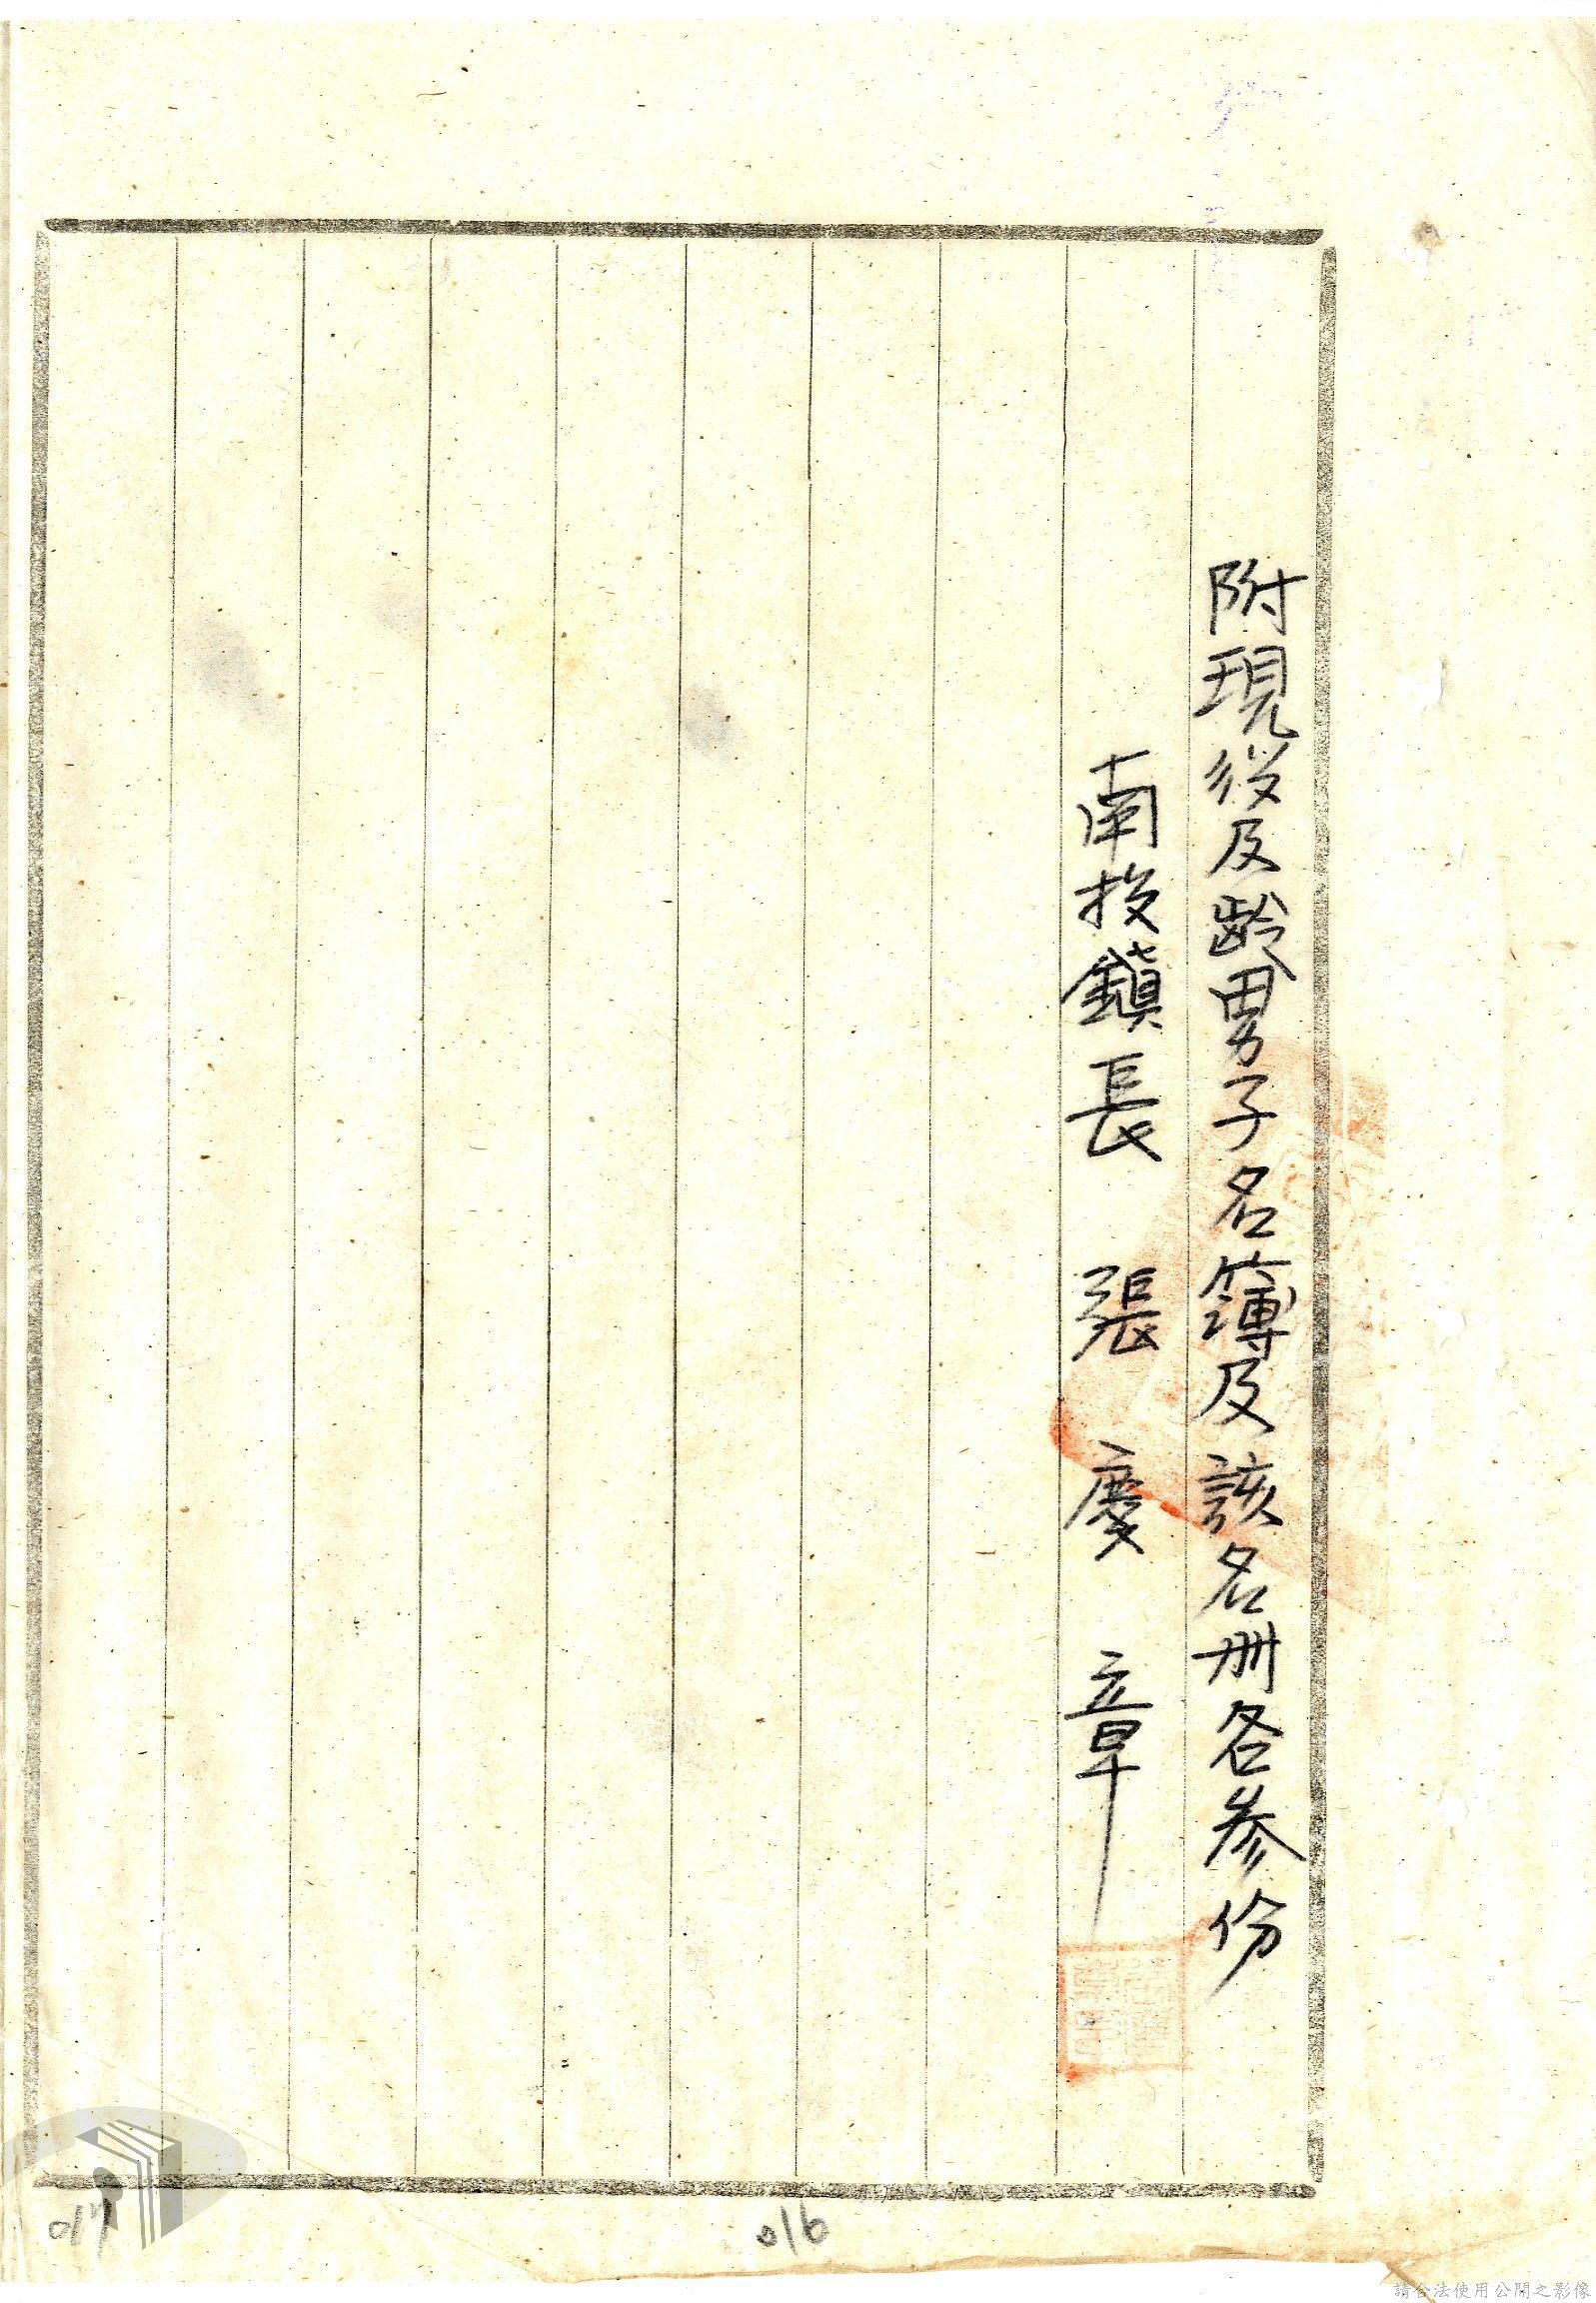 附現役及齡男子名簿及該名册各參份
南投鎮長 張慶章
016
017
請合法使用公開之影像